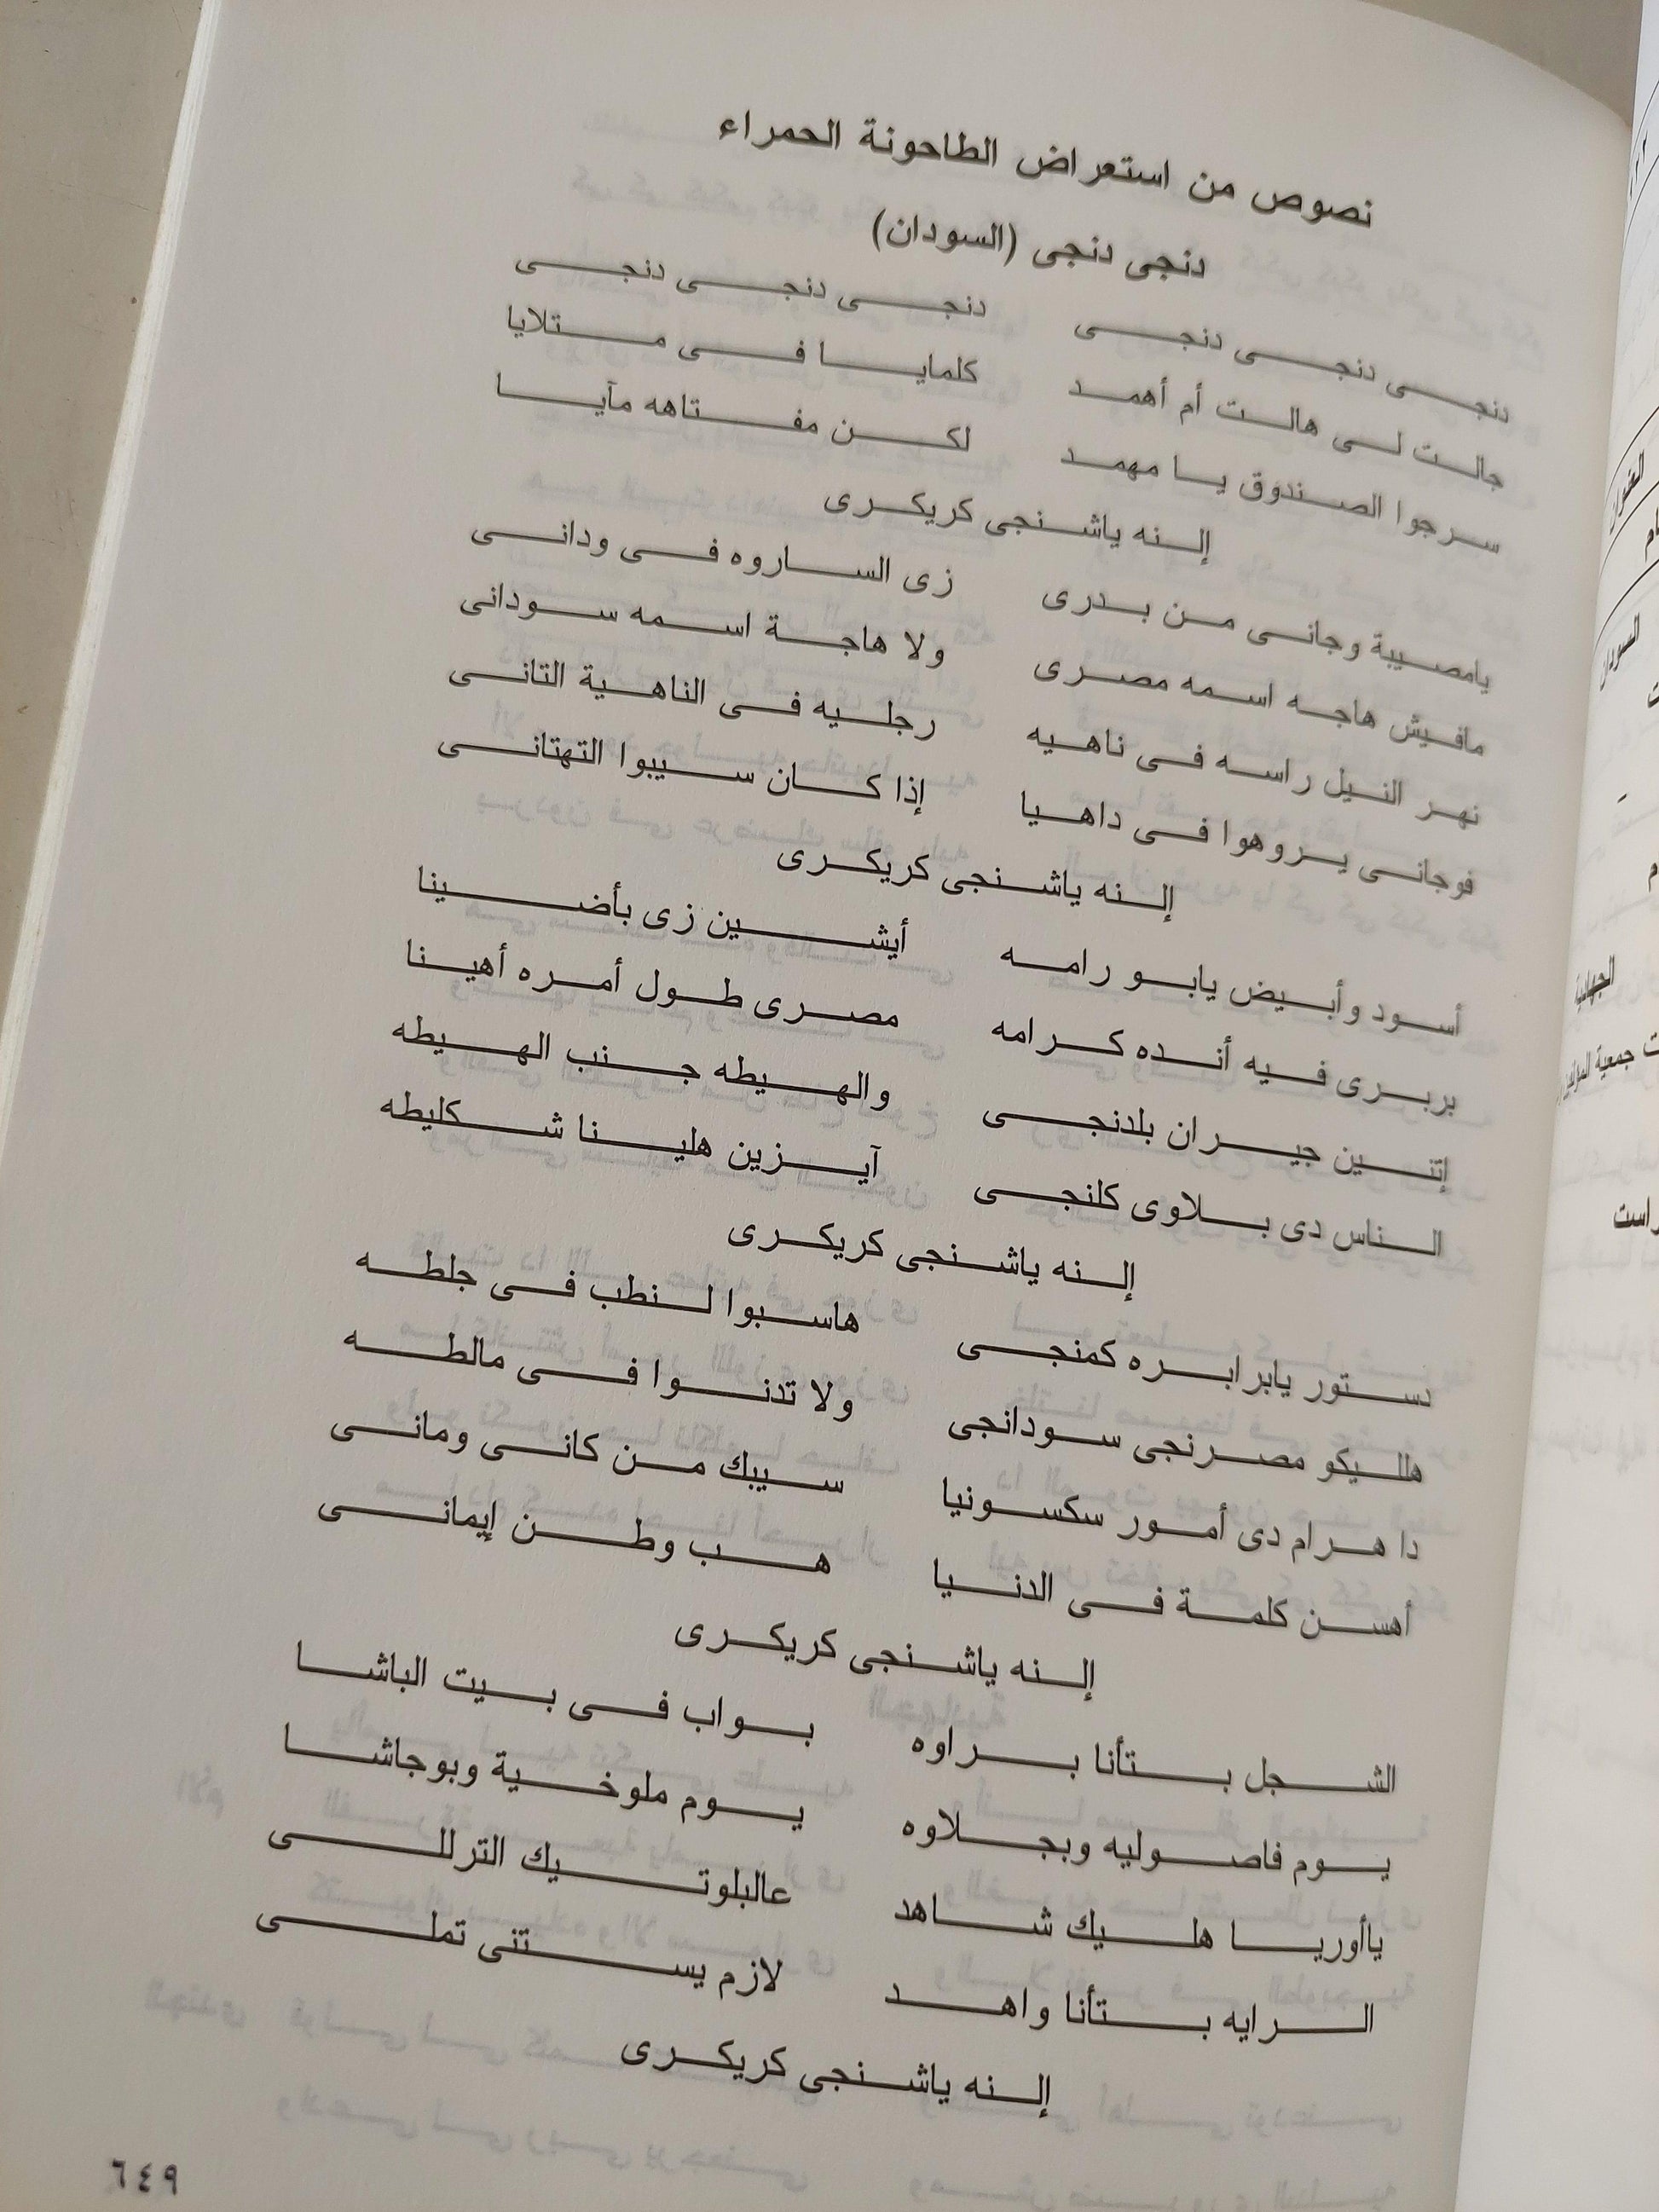 نصوص من استعراض الطاحونة الحمراء
دنجى دنجى (السودان)
دنجى دنجى دنجى دنجى دنجى دنجى
جالت لى هالت أم أهمد كلمايا فى متلايا
سرجوا الصندوق يا مهمد لكن مفتاهه مآيا
إلنه ياشنجى كريكرى
يامصيبة وجانى من بدرى زى الساروه فى ودانى
مافيش هاجه اسمه مصرى ولا هاجة اسمه سودانى
نهر النيل راسه فى ناهيه رجليه فى الناهية التانى
فوجانى يروهوا فى داهيا إذا كان سيبوا التهتانى
إلنه ياشنجى كريكرى
أسود وأبيض يابو رامه أيشين زى بأضينا
بربرى فيه أنده كرامه مصرى طول أمره أهينا
إتنين جيران بلدنجى والهيطه جنب الهيطه
الناس دى بلاوى كلنجى آيزين هلينا شكليطه
إلنه ياشنجى كريكرى
دستور يابرابره كمنجى هاسبوا لنطب فى جلطه
هلليكو مصرنجى سودانجى ولا تدنوا فى مالطه
دا هرام دى أمور سكسونيا سيبك من كانى ومانى
أهسن كلمة فى الدنيا هب وطن إيمانى
إلنه ياشنجى كريكرى
الشجل بتأنا براوه بواب فى بيت الباشا
يوم فاصوليه وبجلاوه يوم ملوخية وبوجاشا
ياأوريا هليك شاهد عالبلوتيك الترللى
الرايه بتأنا واهد لازم يستنى تملى
إلنه ياشنجى كريكرى
٦٤٩
العنوان
السودان
الجهادية
ت جمعية المؤلفين
راست